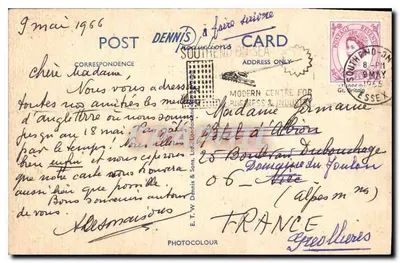 9 mai 1966
à faire suivre
DENNIS
Productions
POST CARD
CORRESPONDENCE
ADDRESS ONLY
SOUTHEND-ON-SEA
MODERN CENTRE FOR
BUSINESS &
SOUTHEND-ON-
8 - PM
9 MAY
1966
ESSEX
Chère Madame,
Nous vous adressons
toutes nos amitiés
d'Angleterre où nous sommes
jusqu'au 18 mai.
par le temps.
bien enfin et nous espérons
que notre carte vous trouvera
aussi bien que possible.
Bons souvenirs autour
de vous.
E. T. W. Dennis & Sons Ltd.
Madame
Hôtel d'Albion
25 Boulevard Dubouchage
Domaine du Foulon
06 - Nice
(Alpes mmes)
FRANCE
Gréolières
PHOTOCOLOUR